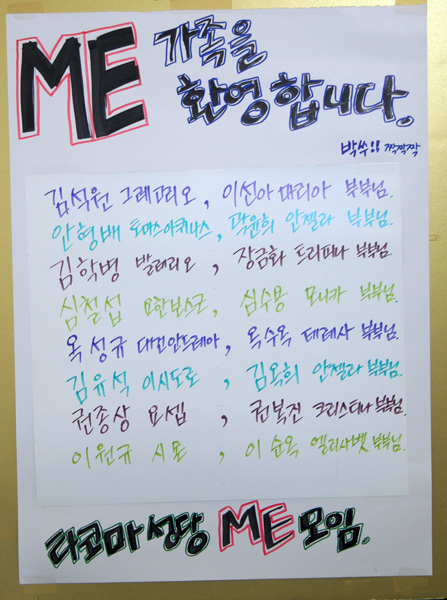 ME 가족을
환영합니다.
박쑤!! 짝짝짝
김석원 그레고리오, 이선아 마리아 부부님.
안형배 토마스아퀴나스, 곽윤희 안젤라 부부님.
김학병 발레리오, 장금화 트리피나 부부님
심철섭 요한보스코, 심수용 모니카 부부님.
옥성규 대건안드레아, 옥수옥 테레사 부부님.
김유석 이시도로, 김옥희 안젤라 부부님.
권종상 요셉, 권복진 크리스티나 부부님.
이원규 시몬, 이순옥 엘리사벳 부부님.
타코마 성당 ME 모임.